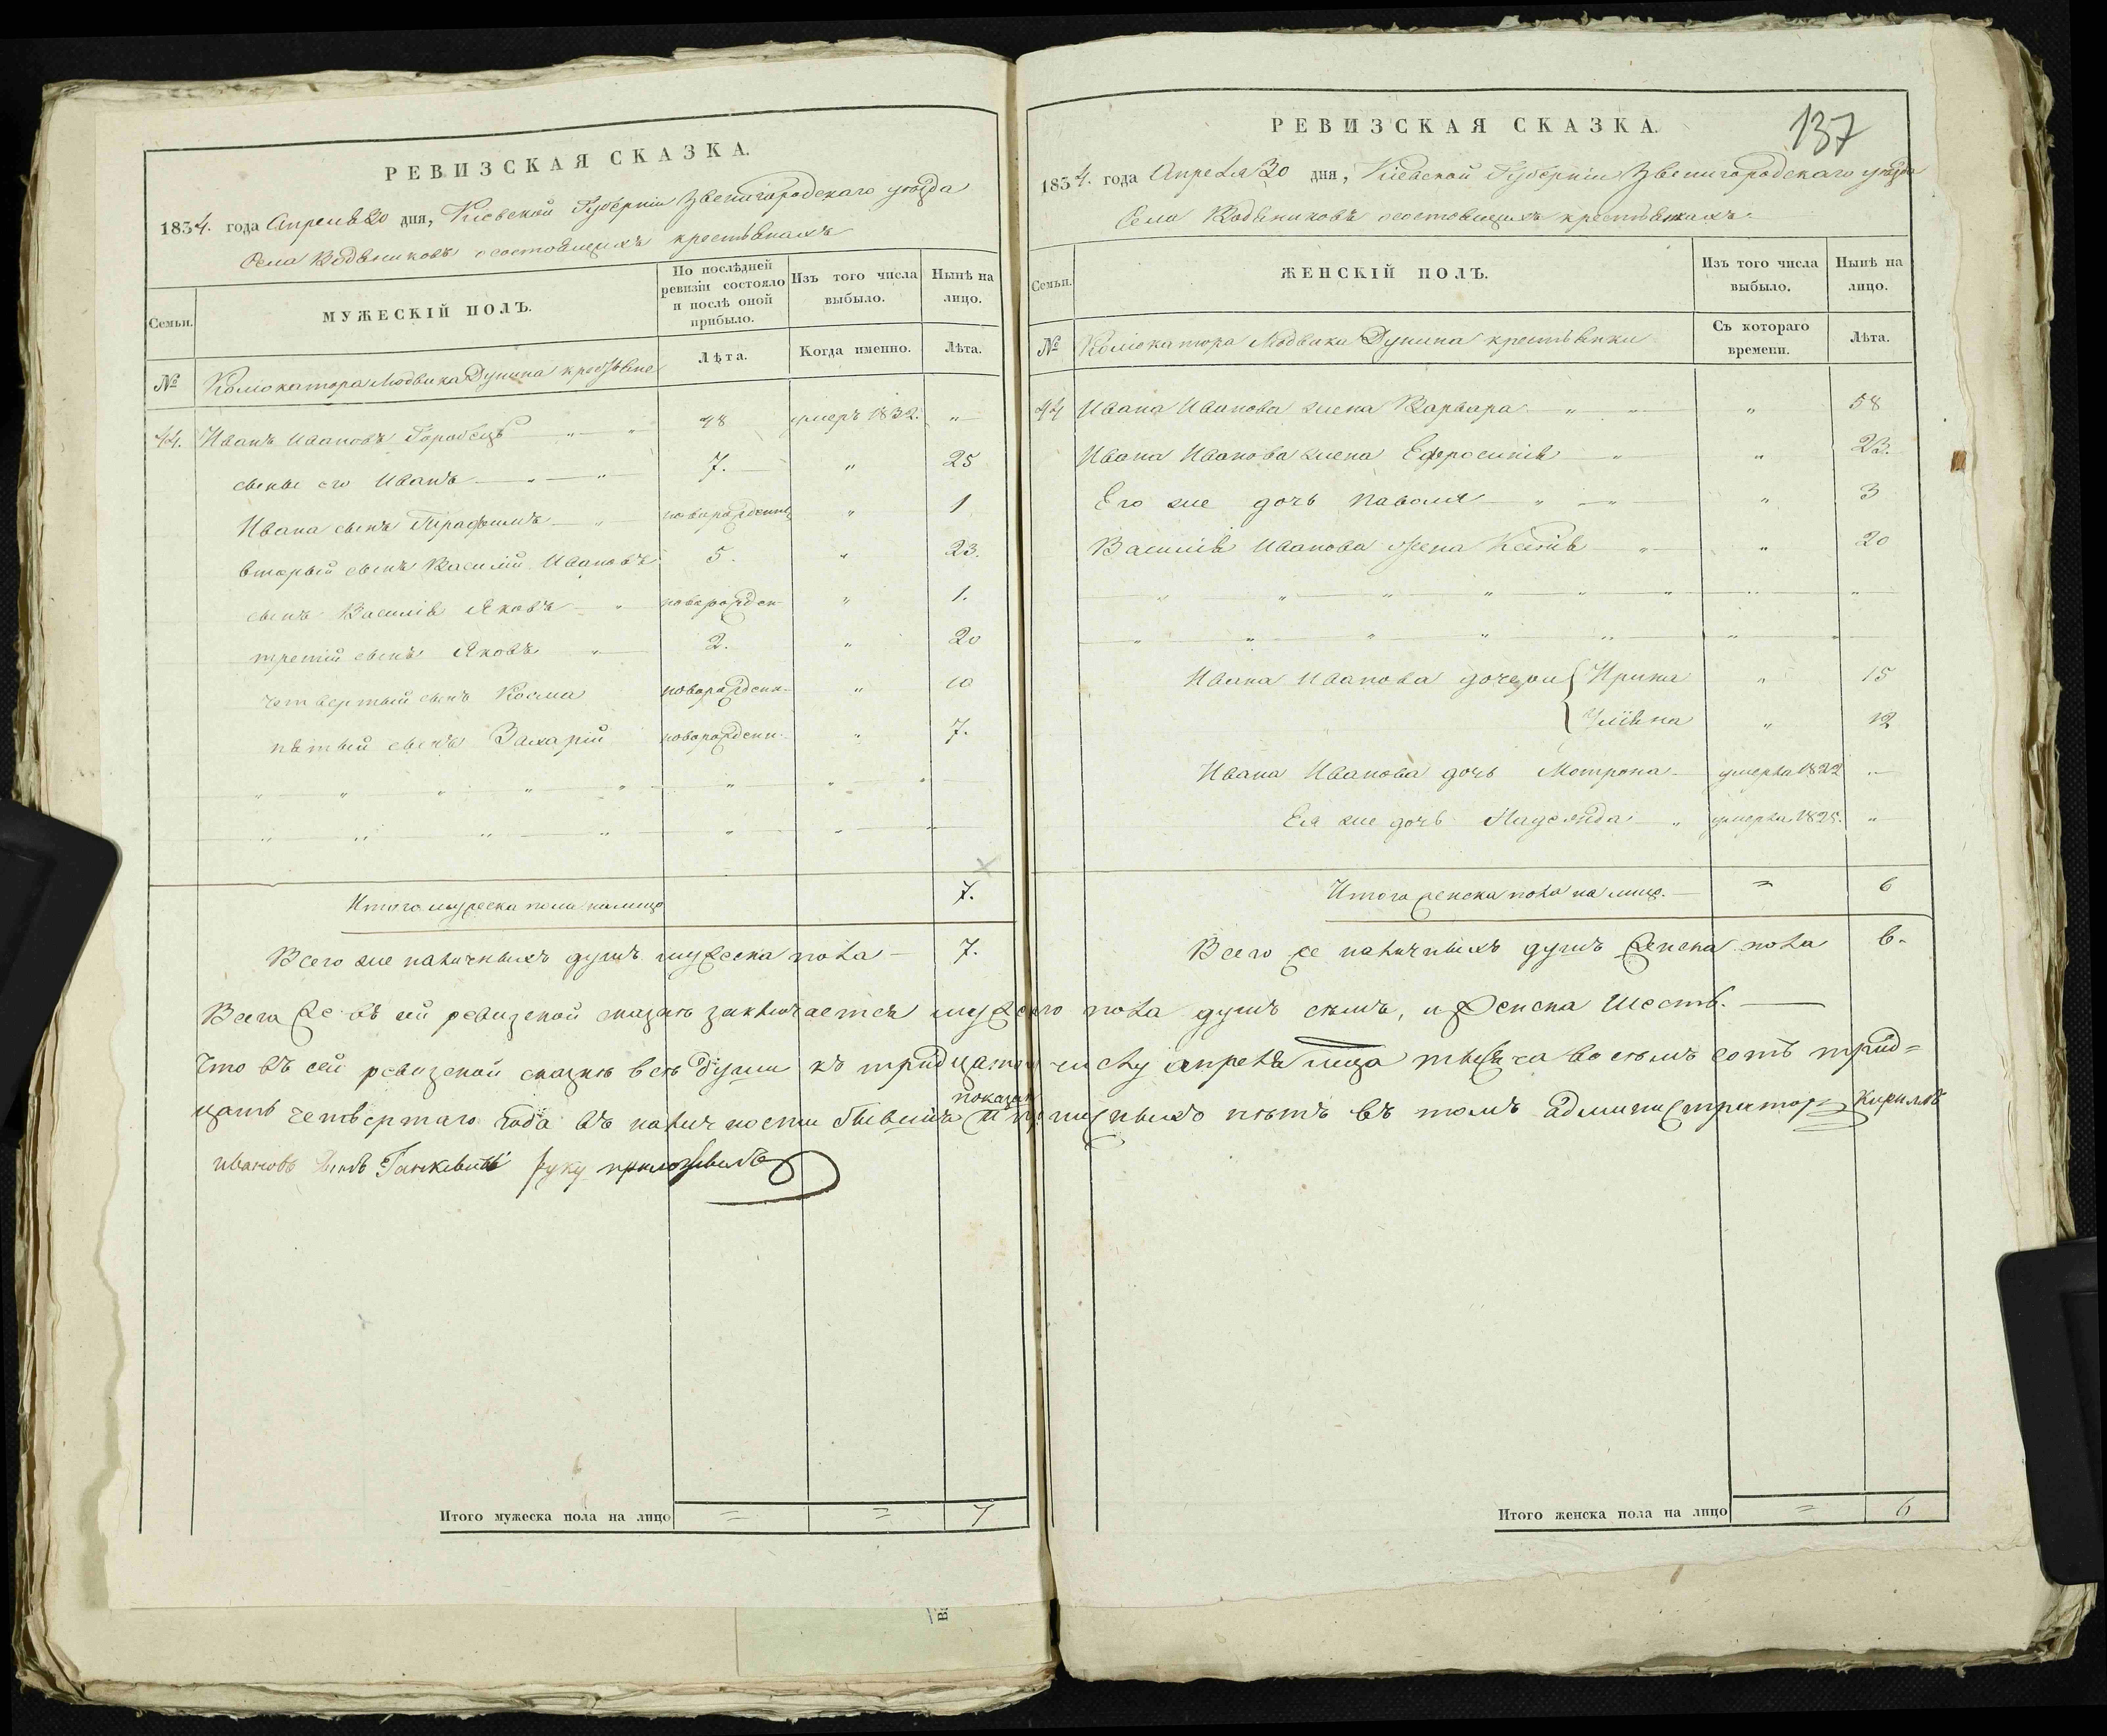 РЕВИЗСКАЯ СКАЗКА.
1834. года Апреля 30 дня, Киевской Губернiи Звенигородскаго уѣзда
Села Водяниковъ о состоящихъ крестьянахъ
Семьи.
МУЖЕСКІЙ ПОЛЪ.
По послѣдней ревизіи состояло и послѣ оной прибыло.
Изъ того числа выбыло.
Нынѣ на лицо.
№
Коліокатора Людвика Дунина крестьяне
Лѣта.
Когда именно.
Лѣта.
44. Иванъ Ивановъ Горобецъ 48 умеръ 1832. „
сыны его Иванъ 7. „ 25
Ивана сынъ Трафимъ новорожденны „ 1
вторый сынъ Василій Ивановъ 5. „ 23.
сынъ Василія Яковъ новорожден „ 1.
третій сынъ Яковъ 2. „ 20
четвертый сынъ Косма новорожденн „ 10
пятый сынъ Захарій новорожденн. „ 7.
Итого мужеска пола на лицо 7.
Всего же наличныхъ душъ мужеска пола — 7.
РЕВИЗСКАЯ СКАЗКА.
137
1834. года Апреля 30 дня, Кіевской Губерніи Звенигородскаго уѣзда
Села Водяниковъ о состоящихъ крестьянахъ.
Семьи.
ЖЕНСКІЙ ПОЛЪ.
Изъ того числа выбыло.
Нынѣ на лицо.
№
Коліокатора Людвика Дунина крестьянки
Съ котораго времени.
Лѣта.
44 Ивана Иванова жена Варвара „ 58
Ивана Иванова жена Ефросинія „ 23.
Его же дочь Паволя „ 3
Василія Иванова жена Ксенія „ 20
Ивана Иванова дочери { Ирина „ 15
Уліяна „ 12
Ивана Иванова дочь Мотрона умерла 1822 „
Его же дочь Надежда умерла 1825. „
Итого женска пола на лицо. = 6
Всего же наличныхъ душъ женска пола 6.
Всего же въ сей ревизской сказкѣ заключается мужеска пола душъ сѣмъ, и женска шесть.
Что въ сей ревизской сказкѣ всѣ души къ тридцатому числу апреля мца тысяча восѣмъ сотъ трид=
цать четвертаго года въ наличности бывшія показаны и прописныхъ нѣтъ въ томъ администраторъ Кириллъ
Ивановъ сынъ руку приложилъ
Итого мужеска пола на лицо = = 7
Итого женска пола на лицо = 6